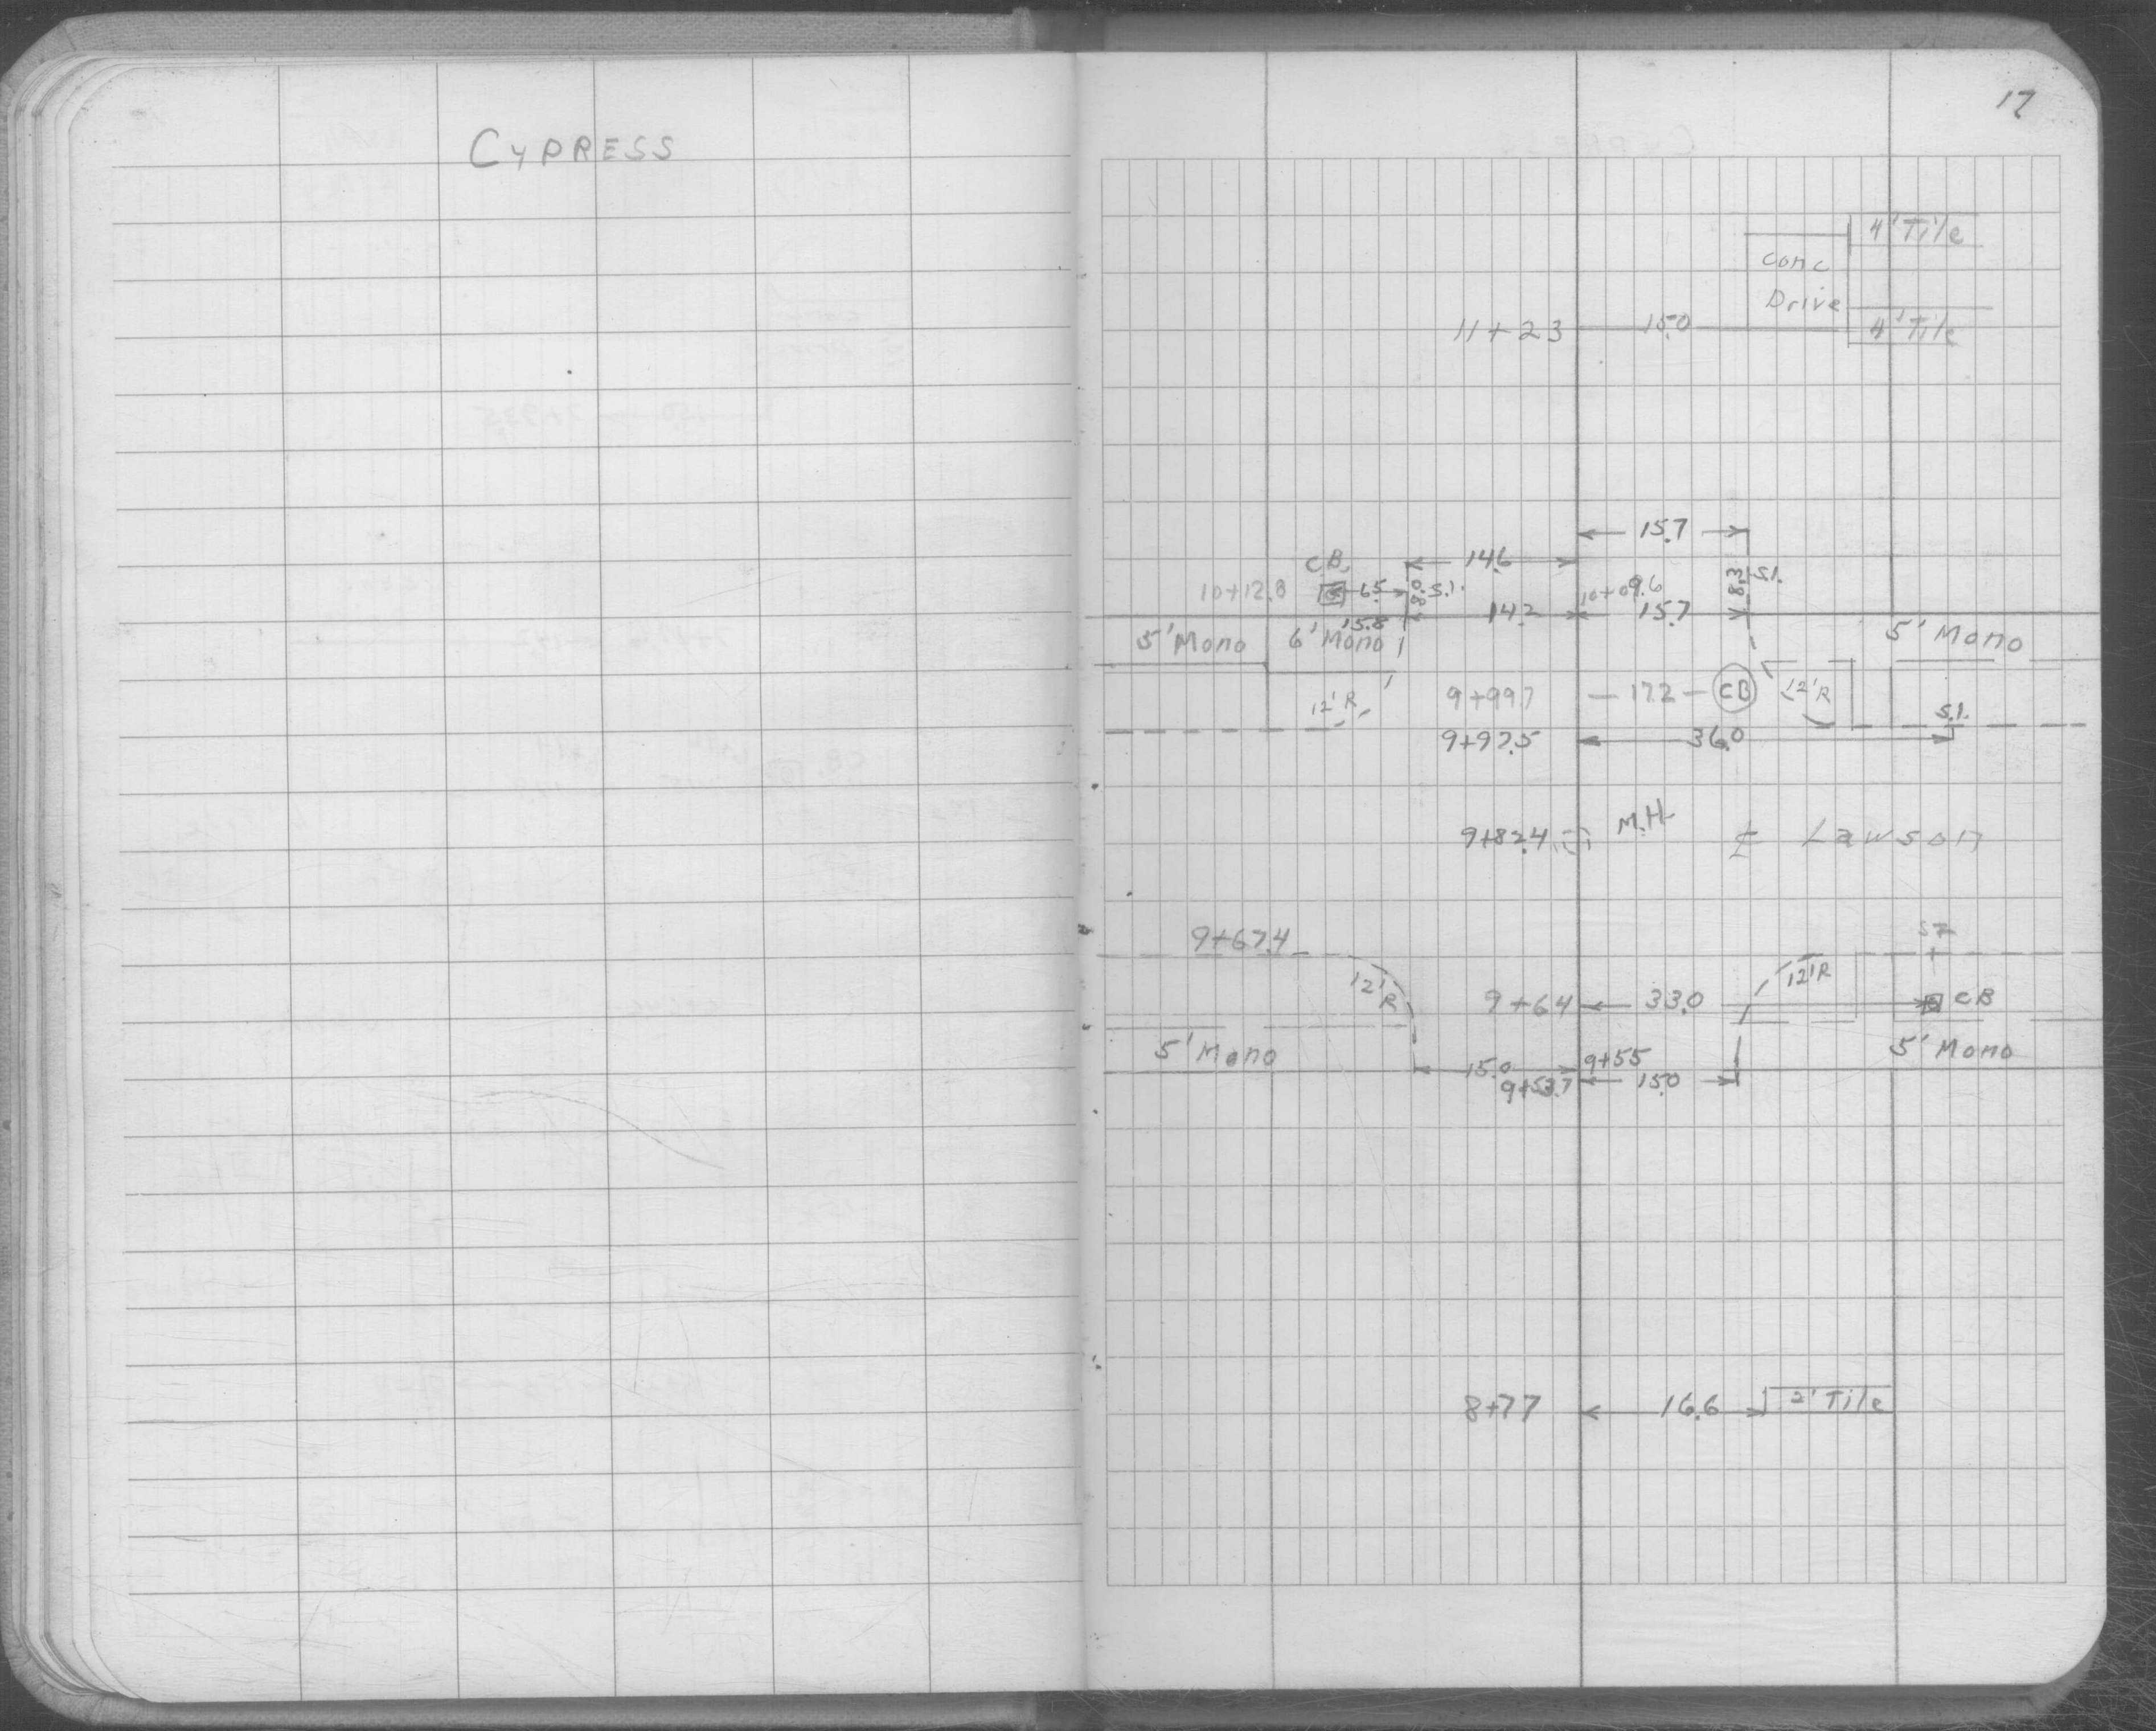 CYPRESS
17
4' Tile
Conc
Drive
11+23 15.0 4' Tile
15.7
CB 14.6
10+12.8 6.5 8.0 S.I. 10+09.6 8.3 S.I.
15.8 14.2 15.7
5' Mono 6' Mono 5' Mono
12'R 9+99.7 17.2 CB 12'R
S.I.
9+97.5 36.0
9+82.4 M.H. ⅊ Lawson
9+67.4
12'R 12'R
9+64 33.0 CB
5' Mono 5' Mono
15.0 9+55
9+53.7 15.0
8+77 16.6 2' Tile